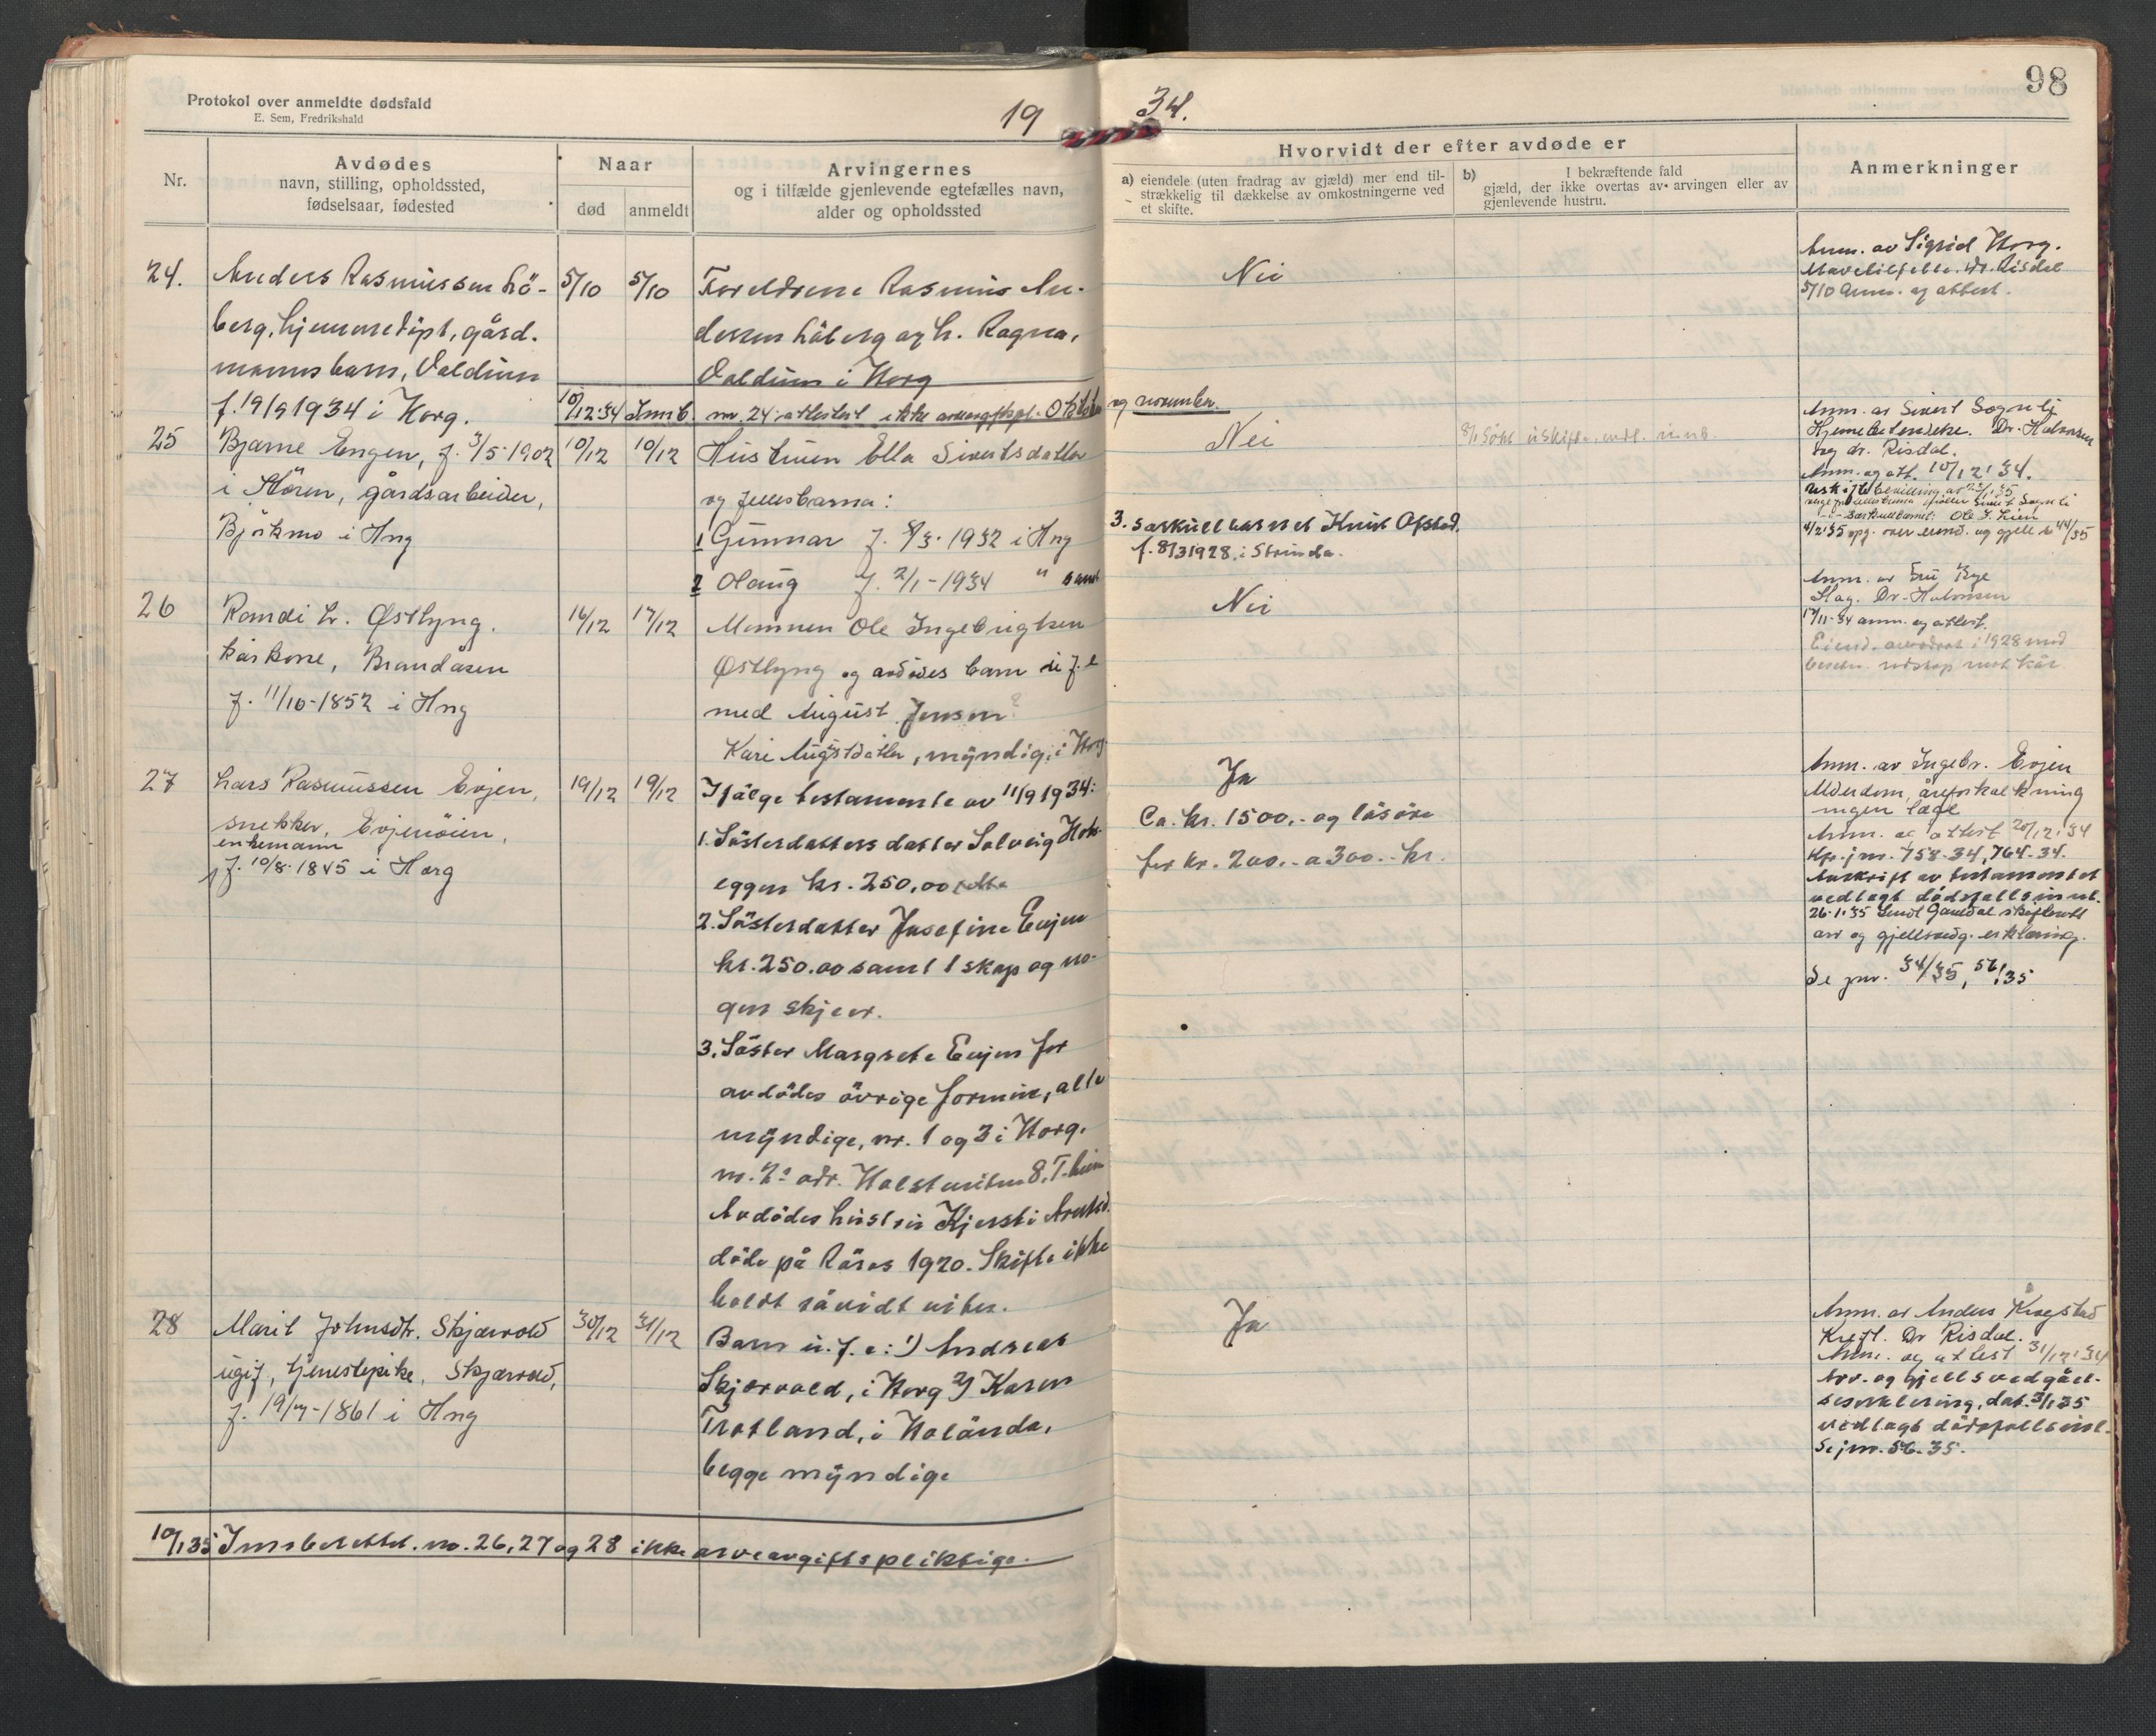 98
Protokol over anmeldte dødsfald
E. Sem, Fredrikshald
19 34.
Nr.
Avdødes
navn, stilling, opholdssted,
fødselsaar, fødested
Naar
død
anmeldt
Arvingernes
og i tilfælde gjenlevende egtefælles navn,
alder og opholdssted
Hvorvidt der efter avdøde er
a) eiendele (uten fradrag av gjæld) mer end til-
strækkelig til dækkelse av omkostningerne ved
et skifte.
b) I bekræftende fald
gjæld, der ikke overtas av arvingen eller av
gjenlevende hustru.
Anmerkninger
24.
Anders Rasmussen Lö-
berg, hjemmedöpt, gård-
mannsbarn, Valdum
f. 19/9 1934 i Horg.
5/10
5/10
Foreldrene Rasmus An-
dersen Löberg og h. Ragna,
Valdum i Horg
Nei
Anm. av Sigrid Horg.
Dr. Risdal
5/10 Anm. og attest.
10/12.34 Innb. nr. 24 attestert ikke Oktober og november.
25
Bjarne Engen, f. 3/5-1902
i Stören, gårdsarbeider,
Björkmo i Horg
10/12
10/12
Hustruen Ella Sivertsdatter
og fellesbarna:
1 Gunnar f. 8/3-1932 i Horg
2 Olaug f. 2/1-1934 " samt
3. særkullbarnet Knut Ofstad,
f. 8/3 1928 i Strinda.
Nei
Anm. av Sivert Sognli
Hjernebetendelse. Dr. Halvorsen
og dr. Risdal.
Anm. og att. 10/12'34.
Uskiftebevilling av
Sivert Sognli
særkullbarnet: Ole J. Lien
4/2'35 opg. over eiend. og gjeld 44/35
26
Randi L. Østlyng.
kårkone, Brandåsen
f. 11/10-1852 i Horg
16/12
17/12
Mannen Ole Ingebrigtsen
Østlyng og avdödes barn u. f. e.
med August Jensen?
Kari Augustdatter, myndig, i Horg
Nei
Anm. av Fru Rye
Slag. Dr. Halvorsen
17/11-34 anm. og attest.
Eiend. i 1928 med
redskap mot kår
27
Lars Rasmussen Evjen,
snekker, Evjenöien,
enkemann
f. 10/8-1845 i Horg
19/12
19/12
Ifölge testamente av 11/9 1934:
1. Södsterdatters datter Solveig Hok-
eggen kr. 250,00
2. Söster datter Josefine Evjen
kr. 250.00 samt 1 skap og no-
gen skjeer.
3. Söster Margrete Evjen for
avdödes övrige formue, alle
myndige, nr. 1 og 3 i Horg.
nr. 2: adr. 8, T.heim
Avdödes hustru Kjersti
döde på Röros 1920. Skifte ikke
holdt såvidt vites.
Ja
Ca. kr. 1500,- og lösöre
for kr. 200.- a 300.- kr.
Anm. av Ingebr. Evjen
Alderdom, åreforkalkning
ingen læge
Anm. og attest 20/12'34
Kfr. jnr. 758-34, 764-34.
Avskrift av testamentet
vedlagt dödsfallsinnb.
26-1-35 Sendt Gauldal
arv og gjellsvedg. erklæring.
Se jnr. 34/35, 56/35
28
Marit Johnsdtr. Skjærvold
ugif, tjenestepike, Skjærvold,
f. 19/7-1861 i Horg
30/12
31/12
Barn u. f. e.: 1) Andreas
Skjærvold, i Horg 2) Karen
Trotland, i Hölonda,
begge myndige
Ja
Anm. av Anders Krogstad
Kreft. Dr Risdal.
Anm. og attest 31/12'34
Arv- og gjellsvedgåel-
seserklæring, dat. 3/1 35
vedlagt dödsfallsinnb.
Se jnr. 56-35.
10/1 35 Innberettet. nr. 26, 27 og 28 ikke arveavgiftspliktige.